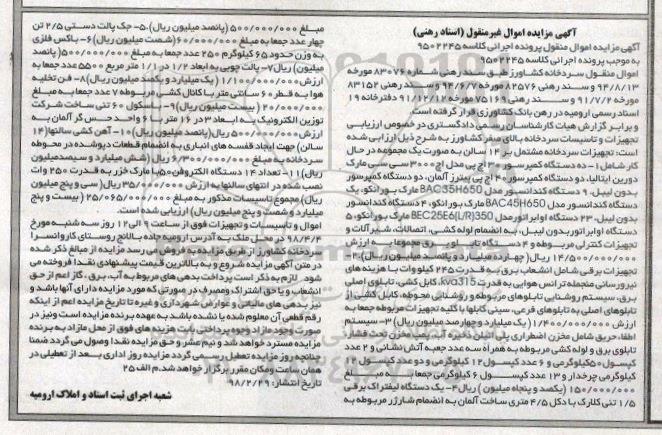 آگهی مزایده اموال غیرمنقول (اسناد رهنی)
آگهی مزایده اموال منقول پرونده اجرائی کلاسه ۹۵۰۲۲۴۵
به موجب پرونده اجرائی کلاسه ۹۵۰۲۲۴۵
اموال منقول سردخانه کشاورز طبق سند رهنی شماره ۸۳۰۷۶ مورخه
۹۴/۸/۱۳ و سند رهنی ۸۲۵۷۶ مورخه ۹۴/۶/۷ و سند رهنی ۸۳۱۵۲
مورخه ۹۱/۷/۲ و سند رهنی ۷۵۱۶۹ مورخه ۹۱/۱۲/۱۲ دفترخانه ۱۹
اسناد رسمی ارومیه در رهن بانک کشاورزی قرار گرفته است.
و برابر گزارش هیات کارشناسان رسمی دادگستری در خصوص ارزیابی
تجهیزات و تاسیسات سردخانه بالای صفر کشاورز به شرح ذیل ارزیابی شده
است: تجهیزات سردخانه مشتمل بر ۱۴ سالن به صورت یک مجموعه در حال
کار شامل ۱- ده دستگاه کمپرسور ۳۰ اچ پی مدل اچ ۳۰۰۰ سی سی مارک
دورین ایتالیا، دو دستگاه کمپرسور ۴۰ اچ پی بیتزر آلمان، دو دستگاه کمپرسور
بدون لیبل، ۹ دستگاه کندانسور مدل BAC35H650 مارک بورانکو، یک
دستگاه کندانسور مدل BAC45H650 مارک بورانکو، ۴ دستگاه کندانسور
بدون لیبل، ۲۳ دستگاه اواپراتور مدل BEC25E6(L/R)350 مارک بورانکو، ۵
دستگاه اواپراتور بدون لیبل، به انضمام لوله کشی، اتصالات، شیرآلات و
تجهیزات کنترلی مربوطه و ۴ دستگاه تابلو برق مجموعا به ارزش
۱۴/۵۰۰/۰۰۰/۰۰۰ ریال( چهارده میلیارد و پانصد میلیون ریال) ۲-
تجهیزات برقی شامل انشعاب برق به قدرت ۲۴۵ کیلو وات با هزینه های
نیرورسانی منجمله ترانس هوایی به قدرت kva315، کابل کشی، تابلوی اصلی
برق، سیستم روشنایی تابلوهای مربوطه و روشنائی محوطه، کابل کشی از
تابلوهای اصلی به تابلوهای فرعی، سینی کابلها با کلیه تجهیزات مربوطه جمعا به
ارزش ۱/۴۰۰/۰۰۰/۰۰۰ ریال (یک میلیارد و چهارصد میلیون ریال) ۳- سیستم
اطفاء حریق شامل مخزن اضطراری پلی اتیلن ذخیره آب، پمپ مخزن تحت فشار،
تابلوی برق و لوله کشی مربوطه به همراه سه عدد جعبه آتش نشانی و ۲ عدد
کپسول ۵۰ کیلوگرمی و ۶ عدد کپسول ۱۲ کیلوگرمی و دو عدد کپسول ۱۲
کیلوگرمی چرخدار و ۱۳ عدد کپسول ۶ کیلوگرمی جمعا به مبلغ
۱۵۰/۰۰۰/۰۰۰ (یکصد و پنجاه میلیون) ریال ۴- یک دستگاه لیفتراک برقی
۱/۵ تنی کلارک با دکل ۴/۵ متری ساخت آلمان به انضمام شارژر مربوطه به
مبلغ ۵۰۰/۰۰۰/۰۰۰ (پانصد میلیون ریال)، ۵- جک پالت دستی ۲/۵ تن
چهار عدد جمعا به مبلغ ۶۰/۰۰۰/۰۰۰ (شصت میلیون ریال) ۶- باکس فلزی
به وزن حدود ۶۵ کیلوگرم ۲۵۰ عدد جمعا به مبلغ ۵۰۰/۰۰۰/۰۰۰ (پانصد
میلیون) ریال ۷- پالت چوبی به ابعاد ۱/۲ در ۱/۱ متر مربع ۵۵۰۰ عدد جمعا به
ارزش ۱/۱۰۰/۰۰۰/۰۰۰ ( یک میلیارد و یکصد میلیون ریال) ۸- فن تخلیه
هوا به قطر ۶۰ سانتی متر با کانال کشی مربوطه ۷ عدد جمعا به مبلغ
۲۰/۰۰۰/۰۰۰ ( بیست میلیون ریال) ۹- باسکول ۶۰ تنی ساخت شرکت
توزین الکترونیک به ابعاد ۳ در ۱۶ متر با ۶ واحد حس گر آلمان به
ارزش ۵۰۰/۰۰۰/۰۰۰ ریال (پانصد میلیون ریال) ۱۰- آهن کشی سالنها (۱۴
سالن) جهت ایجاد قفسه های انباری به انضمام قطعات دپوشده در محوطه
سردخانه به مبلغ ۶/۳۰۰/۰۰۰/۰۰۰ ریال (شش میلیارد و سیصدمیلیون
ریال) ۱۱- تعداد ۱۴ دستگاه الکتروفن ۵۰ با مارک خزر به قدرت ۲۵۰ وات
نصب شده در انتهای سالنها به ارزش ۳۵/۰۰۰/۰۰۰ ریال( سی و پنج میلیون
ریال) مجموع تاسیسات مذکور به مبلغ ۲۵/۰۶۵/۰۰۰/۰۰۰ ( بیست و پنج
میلیارد و شصت و پنج میلیون ریال) ارزیابی شده است.
اموال و تاسیسات و تجهیزات فوق از ساعت ۹ الی ۱۲ روز سه شنبه مورخ
۹۸/۴/۴ در محل ملک به آدرس ارومیه جاده بالانج روستای کاروانسرا
سردخانه کشاورز از طریق مزایده به فروش می رسد مزایده از مبالغ ذکر شده
در متن آگهی مزایده شروع و به بالاترین قیمت پیشنهادی نقدا فروخته می
شود. لازم به ذکر است پرداخت بدهی های مربوط به آب، برق ، گاز اعم از حق
انشعاب و یا حق اشتراک ومصرف در صورتی که مورد مزایده دارای آنها باشد و
نیز بدهی های مالیاتی و عوارض شهرداری و غیره تا تاریخ مزایده اعم از اینکه
رقم قطعی آن معلوم شده یا نشده باشد به عهده برنده مزایده است ونیز در
صورت وجود مازاد وجوه پرداختی بابت هزینه های فوق از محل مازاد به برنده
مزایده مسترد خواهد شد و نیم عشر و حق مزایده نقدا وصول می گردد ضمنا
چنانچه روز مزایده تعطیل رسمی گردد مزایده روز اداری بعد از تعطیلی در
همان ساعت ومکان مقرر برگزار خواهد شد.م الف ۲۵
تاریخ انتشار: ۹۸/۲/۲۹
شعبه اجرای ثبت اسناد و املاک ارومیه